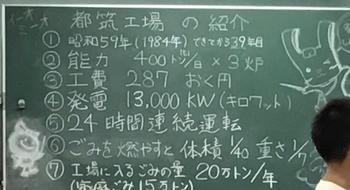 都筑工場の紹介
① 昭和59年(1984年)できてから39年目
② 能力 400トン/日×3炉
③ 工費 287おく円
④ 発電 13,000KW(キロワット)
⑤ 24時間連続運転
⑥ ごみを燃やすと体積1/40 重さ1/7
⑦ 工場に入るごみの量 20万トン/年
(家庭ごみ15万トン)